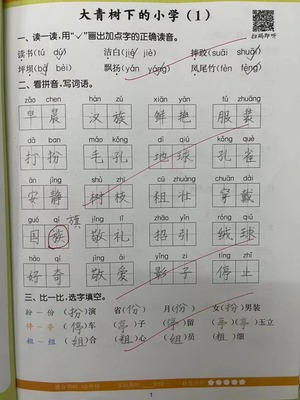 大青树下的小学（1）
扫码即听
一、读一读,用“√”画出加点字的正确读音。
读书(tú dú) 洁白(jié jiè) 摔跤(suāi shuāi)
坪坝(bà bèi) 飘扬(yáng yán) 凤尾竹(fèn fèng)
二、看拼音,写词语。
zǎo chén hàn zú xiān yàn fú zhuāng
早晨 汉族 鲜艳 服装
dǎ ban máo kǒng dì qiú kǒng què
打扮 毛孔 地球 孔雀
ān jìng shù zhī cū zhuàng chuān dài
安静 树枝 粗壮 穿戴
guó qí jìng lǐ zhāo yǐn róng qiú
旗
国族 敬礼 招引 绒球
hào qí jìng ài yǐng zi tíng zhǐ
好奇 敬爱 影子 停止
三、比一比,选字填空。
扮－份 (扮)演 省(份) 月(份) 女(扮)男装
停－亭 (停)车 (亭)子 (停)留 (亭)(亭)玉立
粗－组 (组)合 (粗)心 (组)员 (粗)细
1